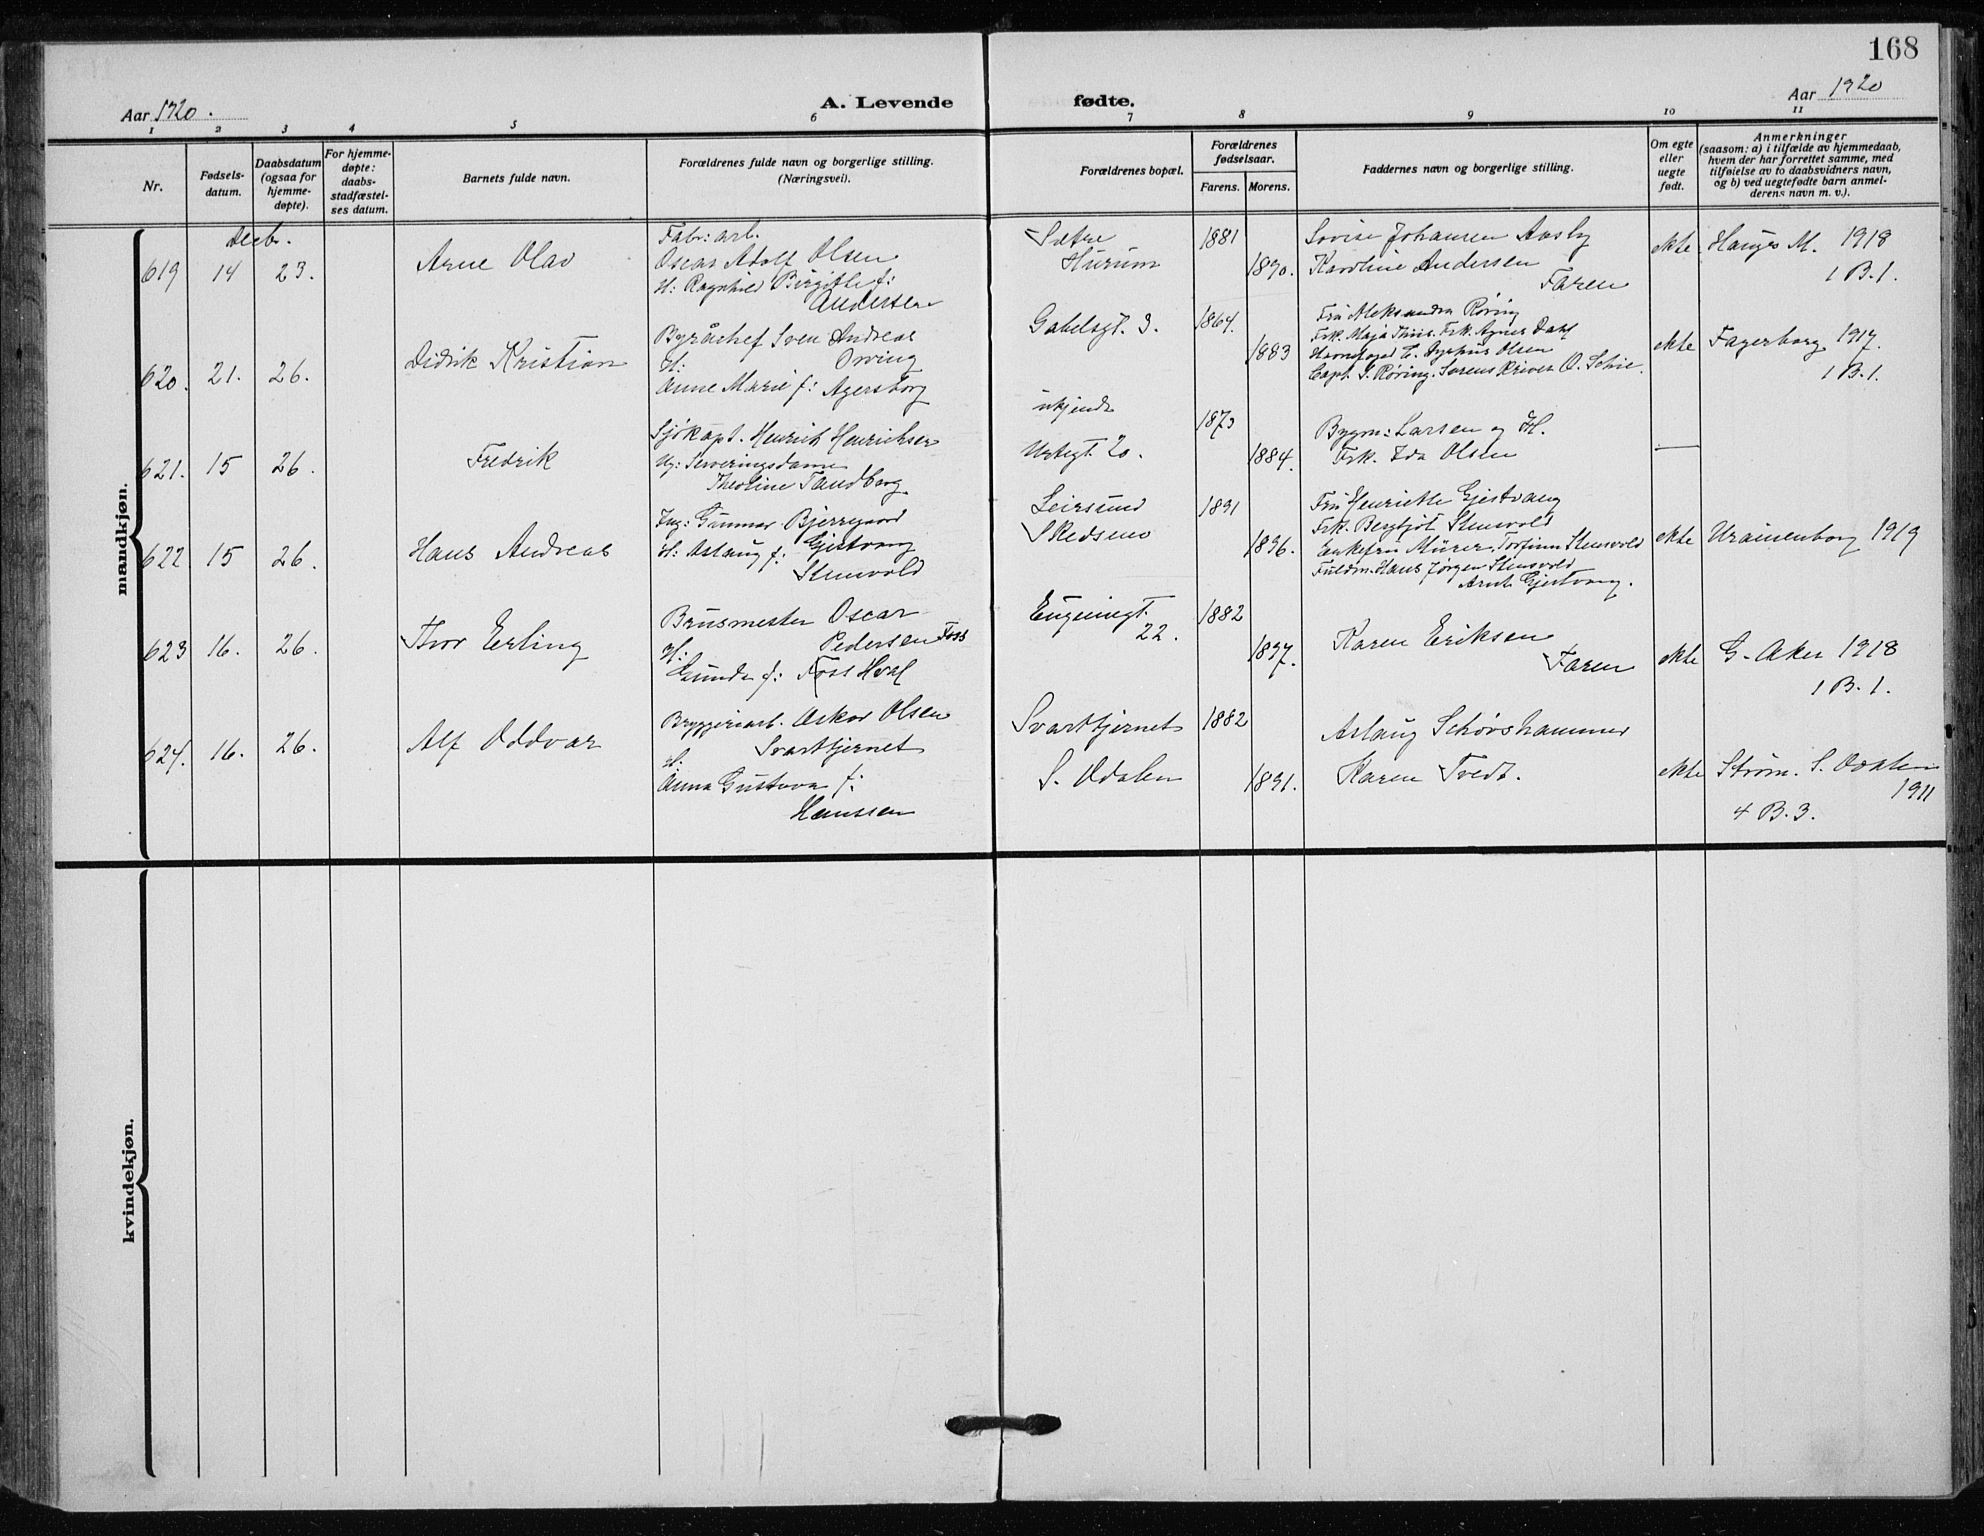 168
Aar 1920.
A. Levende
fødte.
Aar 1920
1 2 3 4 5 6 7 8 9 10 11
Nr.
Fødsels-
datum.
Daabsdatum
(ogsaa for
hjemme-
døpte).
For hjemme-
døpte:
daabs-
stadfæstel-
ses datum.
Barnets fulde navn.
Forældrenes fulde navn og borgerlige stilling.
(Næringsvei).
Forældrenes bopæl.
Forældrenes
fødselsaar.
Farens. Morens.
Faddernes navn og borgerlige stilling.
Om egte
eller
uegte
født.
Anmerkninger
(saasom: a) i tilfælde av hjemmedaab,
hvem der har forrettet samme, med
tilføielse av to daabsvidners navn,
og b) ved uegtefødte barn anmel-
derens navn m. v.).
mandkjøn.
Decb.
619 14 23. Arne Olav
Fabr: arb.
Oscar Adolf Olsen
H: Ragnhild Birgitte f:
Andersen
Sætre
Hurum
1881
1890.
Lovise Johansen Aasby
Karoline Andersen
Faren
ekte
Hauges M. 1918
1 B. 1.
620. 21. 26. Didrik Kristian
Byråchef Sven Andreas
Orving
H:
Anne Marie f: Agersborg
Gabelsgt. 3.
1864.
1883
Fru Aleksandra Røring
Frk. Maja Thiis. Frk. Agnes Dahl
Havnefoged C. Olsen
Capt. S. Røring. Sorenskriver O. Schie.
ekte
Fagerborg 1917.
1 B. 1.
621. 15 26. Fredrik
Sjøkapt. Henrik Henrichsen
Ug: Serveringsdame
Theoline Tandberg.
ukjendt
Urtegt. 20.
1873
1884.
Bygm: Larsen og H.
Frk. Ida Olsen
—
622 15 26. Hans Andreas
Ing: Gunnar Bjerregaard
Gjestvang
H: Aslaug f:
Stensvold
Leirsund
Skedsmo
1891
1896.
Fru Henriette Gjestvang
Frk. Bergljot Stensvold
Enkefru Mürer. Torfinn Stensvold
Fuldm. Hans Jørgen Stensvold
Arnt Gjestvang.
ekte
Uranienborg 1919
623 16. 26. Thor Erling
Brusmester Oscar
Pedersen Foss
H:
Gunda f: Foss Hval
Eugeniegt.
22.
1882
1897.
Karen Eriksen
Faren
ekte
G. Aker 1918
1 B. 1.
624. 16. 26. Alf Oddvar
Bryggeriarb. Oskar Olsen
Svartkjernet
H:
Anna Gustava f:
Hanssen
Svartkjernet
S. Odalen
1882
1891.
Aslaug Schøvshammer
Karen Tvedt.
ekte
Strøm. S. Odalen
1911
4 B. 3.
kvindekjøn.